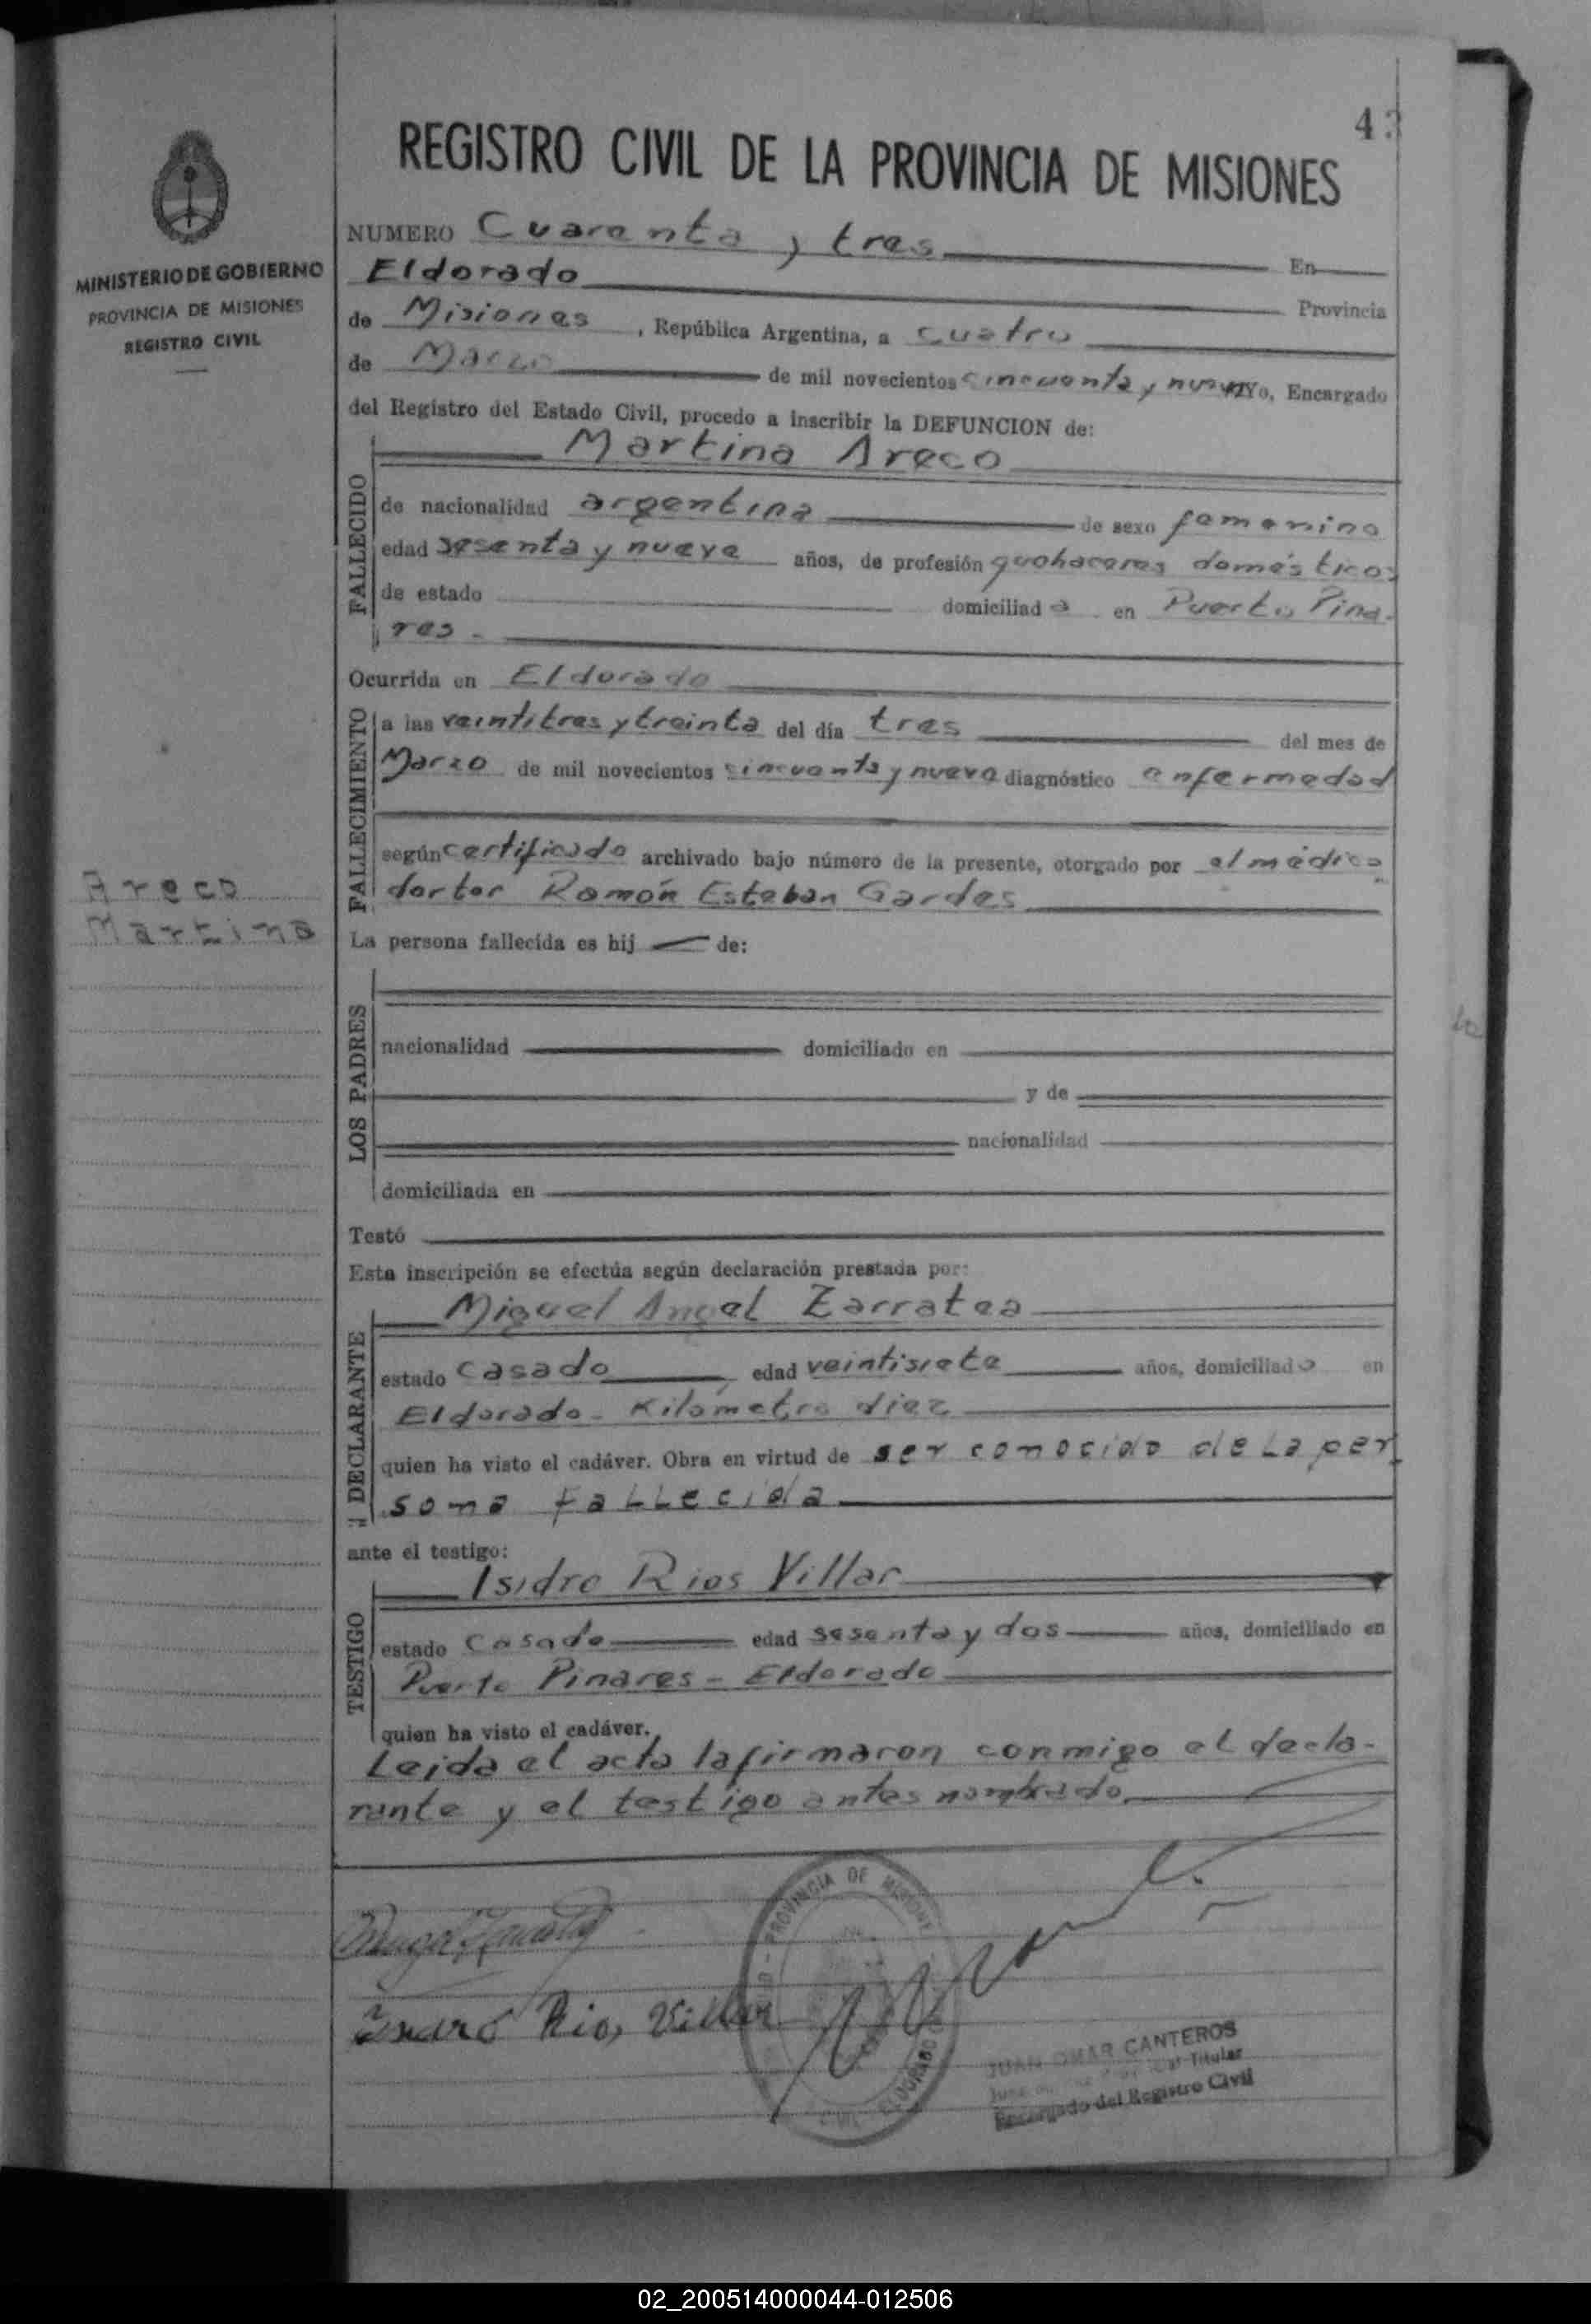 43
REGISTRO CIVIL DE LA PROVINCIA DE MISIONES
MINISTERIO DE GOBIERNO
PROVINCIA DE MISIONES
REGISTRO CIVIL
NUMERO Cuarenta y tres En
Eldorado Provincia
de Misiones, República Argentina, a cuatro
de Marzo de mil novecientos cincuenta y nueve Yo, Encargado
del Registro del Estado Civil, procedo a inscribir la DEFUNCION de:
Martina Areco
FALLECIDO
de nacionalidad argentina de sexo femenino
edad sesenta y nueve años, de profesión quehaceres domésticos
de estado domiciliada en Puerto Pina-
res.
Ocurrida en Eldorado
FALLECIMIENTO
a las veintitres y treinta del día tres del mes de
Marzo de mil novecientos cincuenta y nueve diagnóstico enfermedad
según certificado archivado bajo número de la presente, otorgado por el médico
doctor Ramón Esteban Gardes
Areco
Martina
La persona fallecida es hij de:
LOS PADRES
nacionalidad domiciliado en
y de
nacionalidad
domiciliada en
Testó
Esta inscripción se efectúa según declaración prestada por:
Miguel Angel Zarratea
DECLARANTE
estado casado edad veintisiete años, domiciliado en
Eldorado - Kilómetro diez
quien ha visto el cadáver. Obra en virtud de ser conocido de La per
sona FaLLecida
ante el testigo:
Isidro Rios Villar
TESTIGO
estado Casado edad sesenta y dos años, domiciliado en
Puerto Pinares - Eldorado
quien ha visto el cadáver.
Leida el acta la firmaron conmigo el decla-
rante y el testigo antes nombrado.
PROVINCIA DE MISIONES
CIVIL ELDORADO
Rios Villar
JUAN OMAR CANTEROS
Titular
Encargado del Registro Civil
02_200514000044-012506